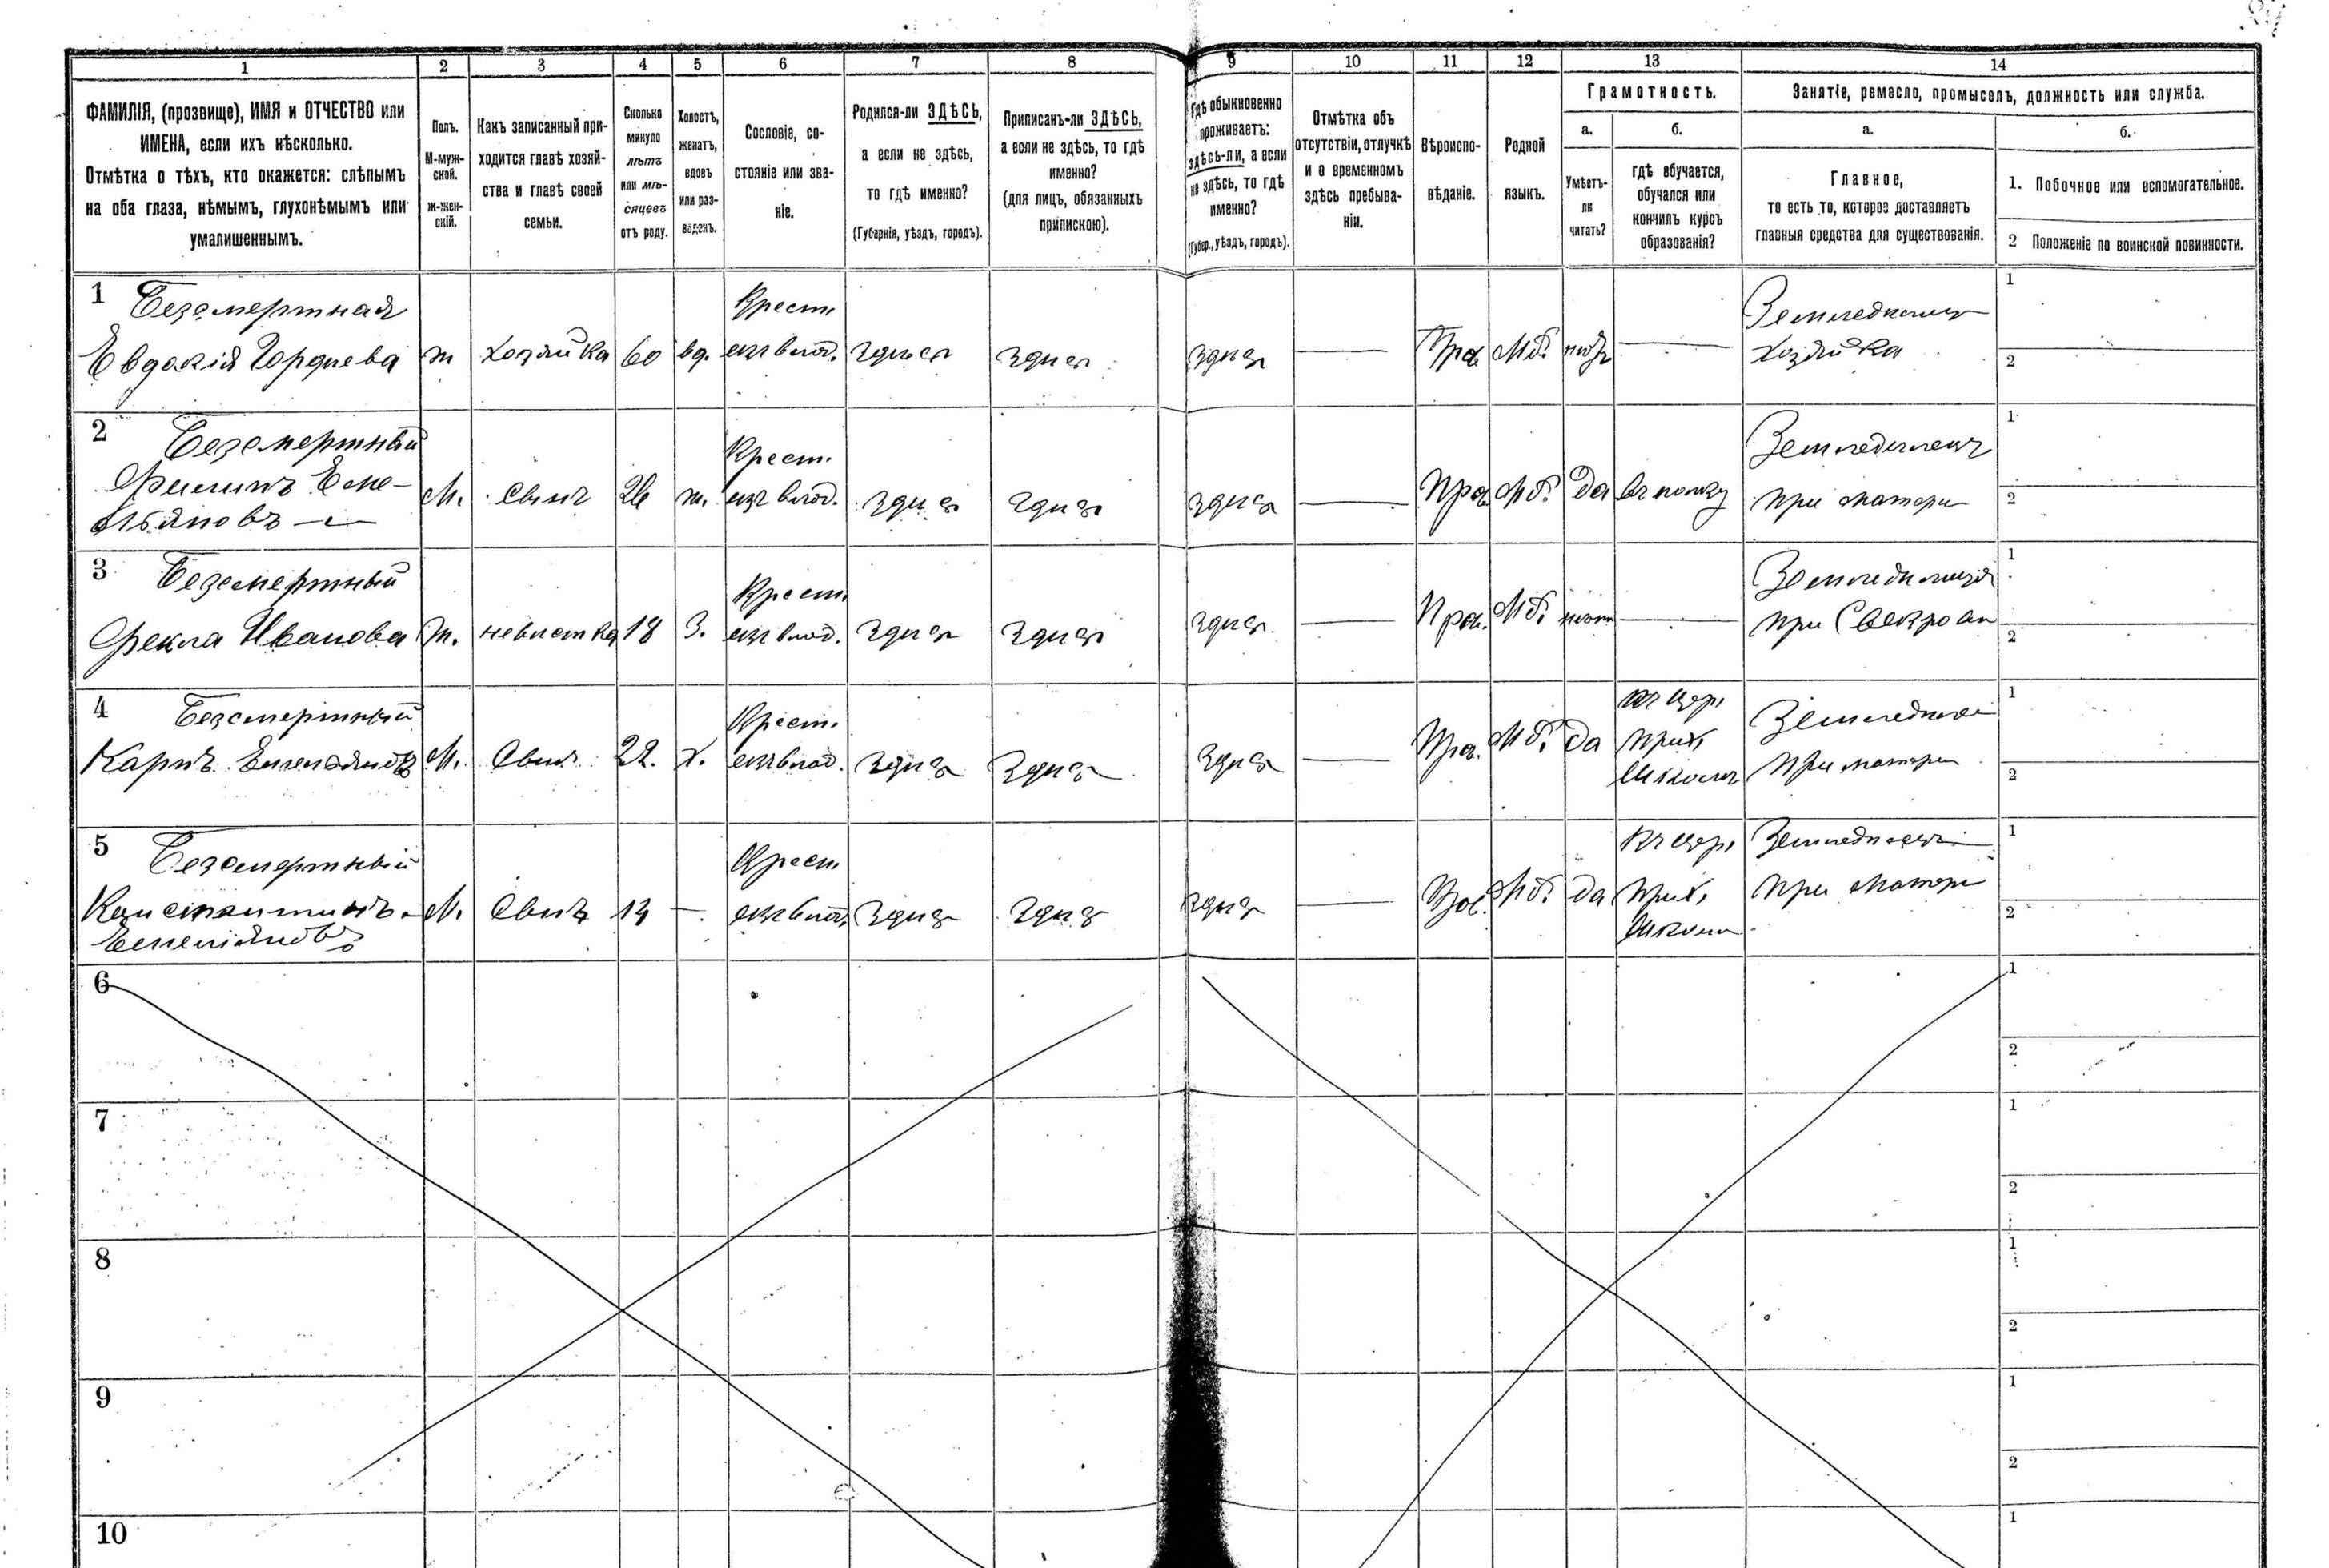 1 2 3 4 5 6 7 8 9 10 11 12 13 14
ФАМИЛІЯ, (прозвище), ИМЯ и ОТЧЕСТВО или
ИМЕНА, если ихъ нѣсколько.
Отмѣтка о тѣхъ, кто окажется: слѣпымъ
на оба глаза, нѣмымъ, глухонѣмымъ или
умалишеннымъ.
Полъ.
М-муж-
ской.
ж-жен-
скій.
Какъ записанный при-
ходится главѣ хозяй-
ства и главѣ своей
семьи.
Сколько
минуло
лѣтъ
или мѣ-
сяцевъ
отъ роду.
Холостъ,
женатъ,
вдовъ
или раз-
веденъ.
Сословіе, со-
стояніе или зва-
ніе.
Родился-ли ЗДѢСЬ,
а если не здѣсь,
то гдѣ именно?
(Губернія, уѣздъ, городъ).
Приписанъ-ли ЗДѢСЬ,
а если не здѣсь, то гдѣ
именно?
(для лицъ, обязанныхъ
припискою).
Гдѣ обыкновенно
проживаетъ:
здѣсь-ли, а если
не здѣсь, то гдѣ
именно?
(Губер., уѣздъ, городъ).
Отмѣтка объ
отсутствіи, отлучкѣ
и о временномъ
здѣсь пребыва-
ніи.
Вѣроиспо-
вѣданіе.
Родной
языкъ.
Грамотность.
а.
Умѣетъ-
ли
читать?
б.
гдѣ обучается,
обучался или
кончилъ курсъ
образованія?
Занятіе, ремесло, промыселъ, должность или служба.
а.
Главное,
то есть то, которое доставляетъ
главныя средства для существованія.
б.
1. Побочное или вспомогательное.
2 Положеніе по воинской повинности.
1 Безсмертная
Евдокія Гордѣева
ж хозяйка 60 вд.
Крест.
изъ влад.
здѣсь здѣсь здѣсь — Пра. Мб. нѣтъ —
хозяйка
1
2
2 Безсмертный
Филипъ Еме-
льяновъ
М. Сынъ 26 ж.
Крест.
изъ влад.
здѣсь здѣсь здѣсь — Пра. Мб. Да
Земледѣлецъ
при матери
1
2
3 Безсмертный
Фекла Иванова
ж. невѣстка 18 З.
Крест.
изъ влад.
здѣсь здѣсь здѣсь — Пра. Мб. нѣтъ —
при Свекрови
1
2
4 Безсмертный
Карпъ Емельяновъ
М. Сынъ 22. х.
Крест.
изъ влад.
здѣсь здѣсь здѣсь — Пра. Мб. да
въ цер.
прих.
школѣ
при матери
1
2
5 Безсмертный
Константинъ
Емельяновъ
М. Сынъ —
Крест.
изъ влад.
здѣсь здѣсь здѣсь — Мб. да
въ цер.
прих.
школѣ
Земледѣлецъ
при матери
1
2
6
1
2
7
1
2
8
1
2
9
1
2
10
1